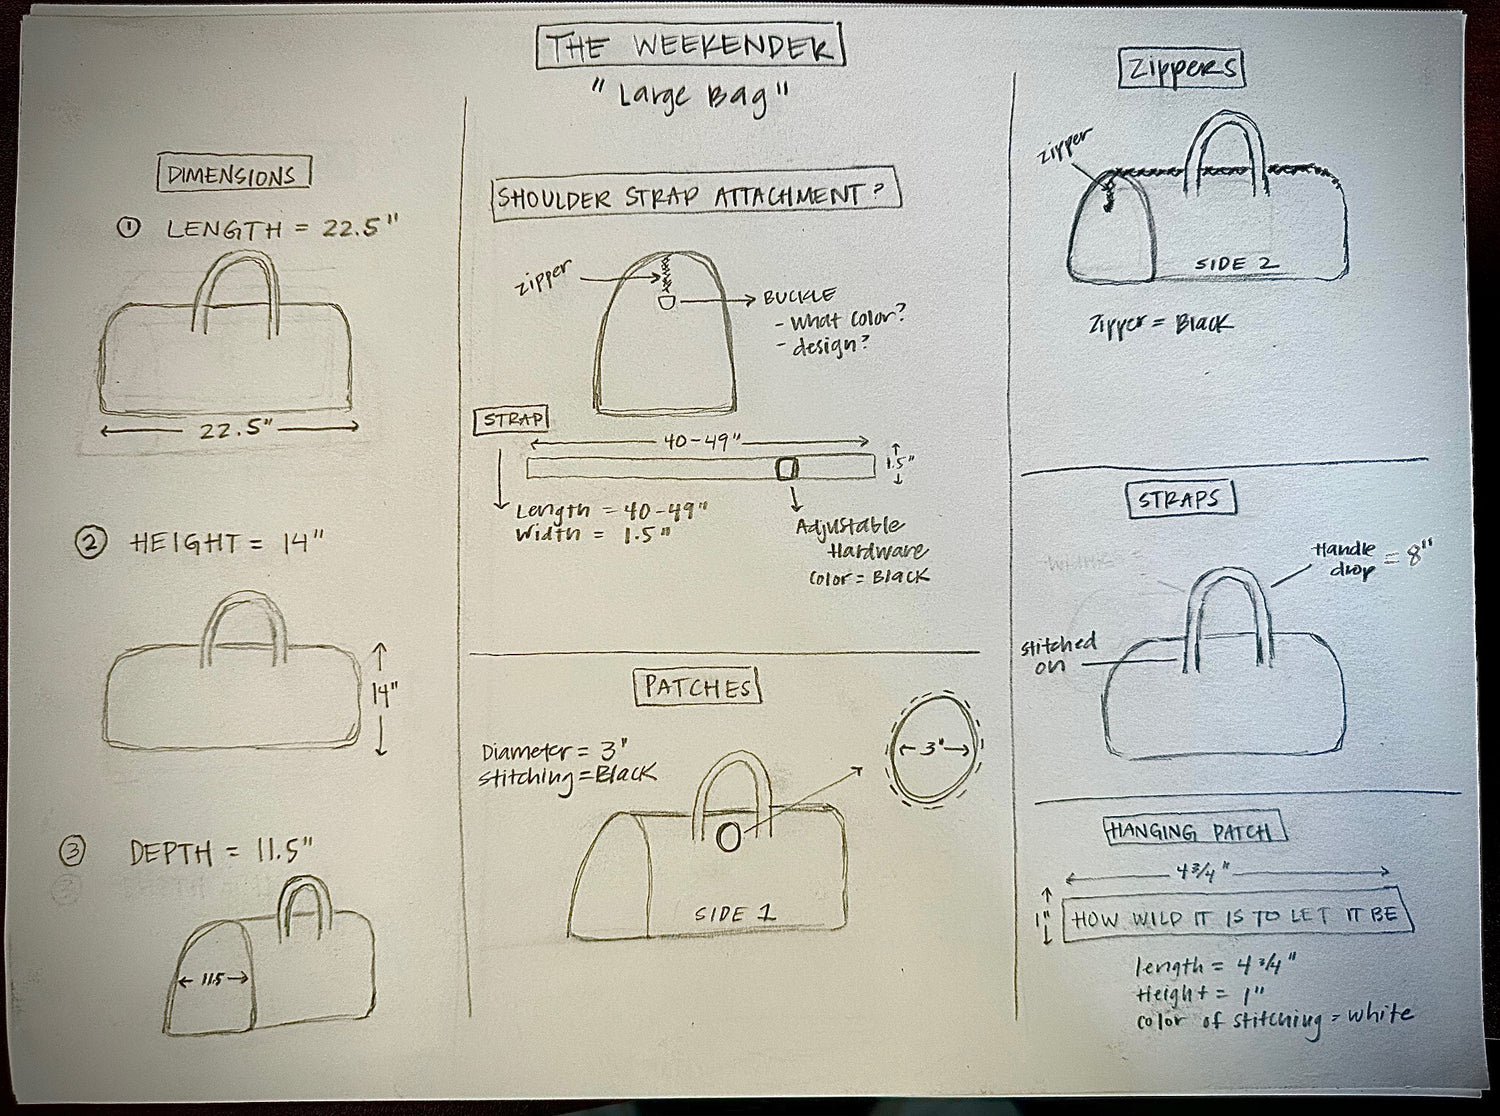 THE WEEKENDER
"Large Bag"
DIMENSIONS
① LENGTH = 22.5"
22.5"
② HEIGHT = 14"
14"
③ DEPTH = 11.5"
11.5
SHOULDER STRAP ATTACHMENT?
zipper
BUCKLE
- what color?
- design?
STRAP
40-49"
1.5"
Length = 40-49"
Width = 1.5"
Adjustable
Hardware
color = Black
PATCHES
Diameter = 3"
Stitching = Black
3"
SIDE 1
Zippers
zipper
SIDE 2
Zipper = Black
STRAPS
Handle
drop = 8"
stitched
on
HANGING PATCH
4 3/4"
1"
HOW WILD IT IS TO LET IT BE
length = 4 3/4"
Height = 1"
color of stitching = white